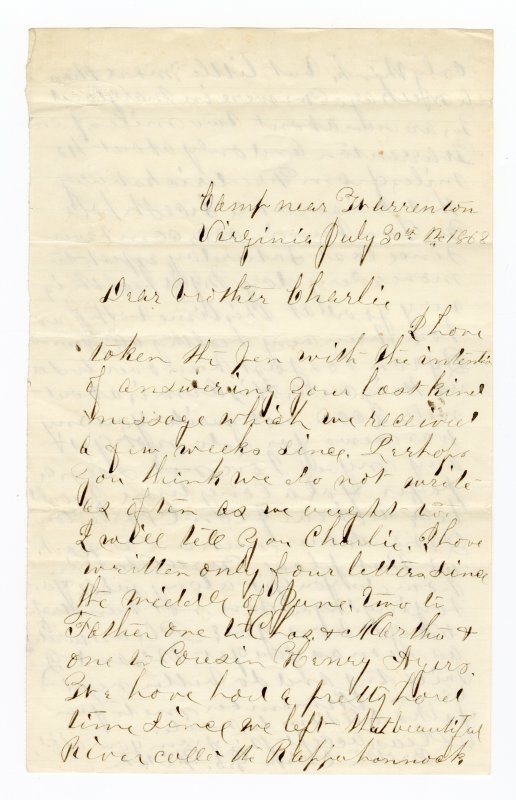 Camp near Warrenton
Virginia July 30th 186
Dear Brother Charlie
I have
taken the pen with the intention
of answering your last kind
message which we received
a few weeks since. Perhaps
you think we do not write
as often as we ought to
I will tell you Charlie. I have
written only four letters since
the middle of June. two to
Father one to Chas. & Martha &
one to Cousin Henry Ayers.
We have had a pretty hard
time since we left that beautiful
River calld the Rappahannock